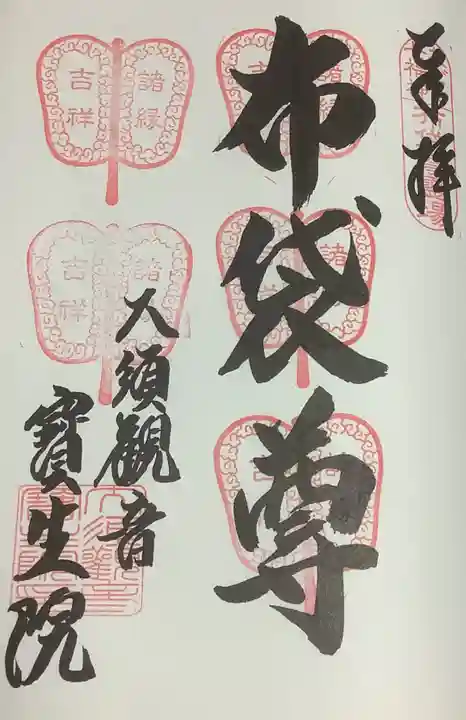 奉拝
布袋尊
大須観音
寳生院
諸縁
吉祥
諸縁
諸
吉祥
諸